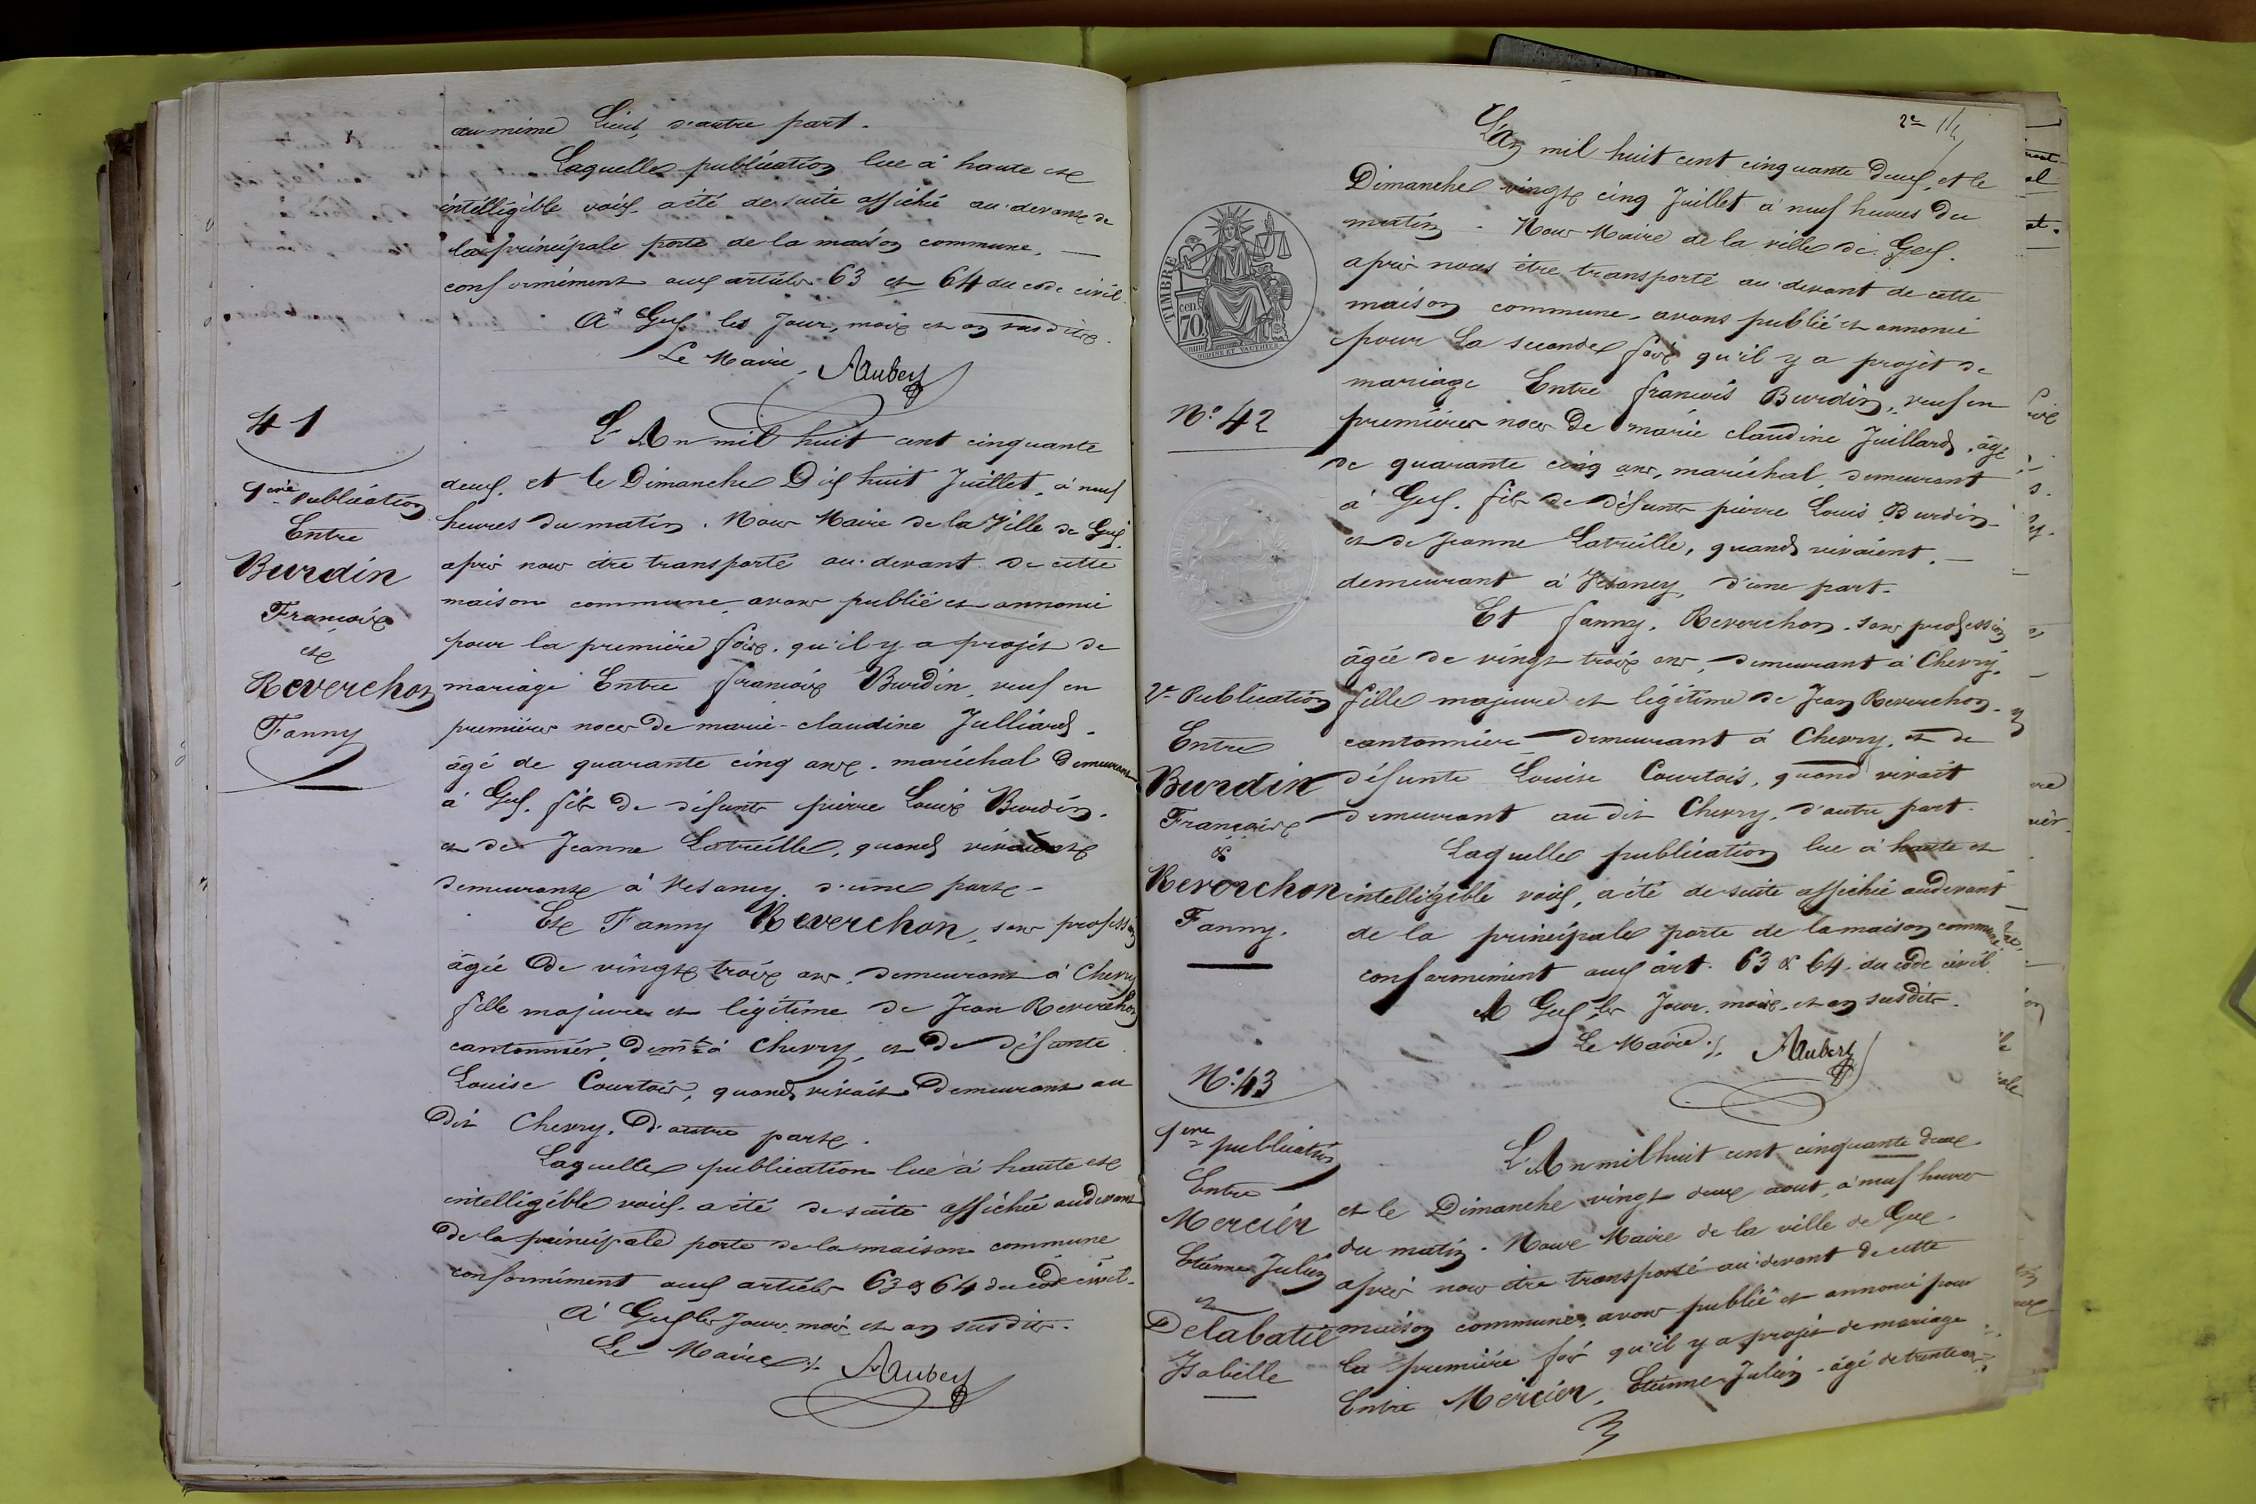 au même Lieu, d'autre part.
Laquelle publication lue à haute et
intelligible voix, a été de suite affiché au devant de
la principale porte de la maison commune,
conformément aux articles 63 et 64 du code civil.
À Gex les Jour, mois et an susdits.
Le Maire, AAubery
41
1ère Publication
Entre
Burdin
François
et
Reverchon
Fanny
L'An mil huit cent cinquante
deux, et le Dimanche Dix huit Juillet, à neuf
heures du matin. Nous Maire de la Ville de Gex,
après nous être transporté au devant de cette
maison commune, avons publié et annoncé
pour la première fois, qu'il y a projet de
mariage Entre François Burdin, veuf en
premières noces De marie-claudine Julliard,
âgé de quarante cinq ans, maréchal demeurant
à Gex, fils De défunts pierre Louis Burdin,
et de Jeanne Latreille, quand vivaient
demeurant à Vesancy, d'une part-
Et Fanny Reverchon, sans profession
âgée De vingt trois ans, demeurant à Chevry
fille majeure et légitime de Jean Reverchon
cantonnier, demt à Chevry, et De défunte
Louise Courtois, quand vivait Demeurant au
Dit Chevry, D'autre part.
Laquelle publication lue à haute et
intelligible voix, a été de suite affichée au devant
De la principale porte de la maison commune
conformément aux articles 63 & 64 du code civil.
À Gex les Jour, mois et an susdits.
Le Maire, AAubery
2e
L'an mil huit cent cinquante deux, et le
Dimanche vingt cinq Juillet à neuf heures du
matin. Nous Maire de la ville de Gex.
après nous être transporté au devant de cette
maison commune, avons publié et annoncé
pour la seconde fois qu'il y a projet de
mariage Entre françois Burdin, veuf en
premières noces De marie claudine Juillard, âgé
de quarante cinq ans, maréchal, demeurant
à Gex, fils de défunts pierre Louis Burdin
et de Jeanne Latreille, quand vivaient,
demeurant à Vesancy, d'une part.
Et fanny, Reverchon, sans profession
âgée de vingt trois ans, demeurant à Chevry,
fille majeure et légitime de Jean Reverchon,
cantonnier demeurant à Chevry, et de
défunte Louise Courtois, quand vivait
demeurant au dit Chevry, d'autre part.
Laquelle publication lue à haute et
intelligible voix, a été de suite affiché au devant
de la principale porte de la maison commune,
conformément aux art. 63 & 64, du code civil
À Gex les Jour, mois, et an susdits.
Le Maire, AAubery
TIMBRE
cen.
70
No. 42
2e Publication
Entre
Burdin
François
&
Reverchon
Fanny.
No. 43
1ère publication
Entre
Mercier
Etienne Julien
et
Delabatie
Isabelle
L'An mil huit cent cinquante deux
et le Dimanche vingt deux aout, à neuf heures
du matin. Nous Maire de la ville de Gex.
après nous être transporté au devant de cette
maison commune, avons publié et annoncé pour
la première fois qu'il y a projet de mariage
Entre Mercier, Etienne Julien - âgé de trente ans